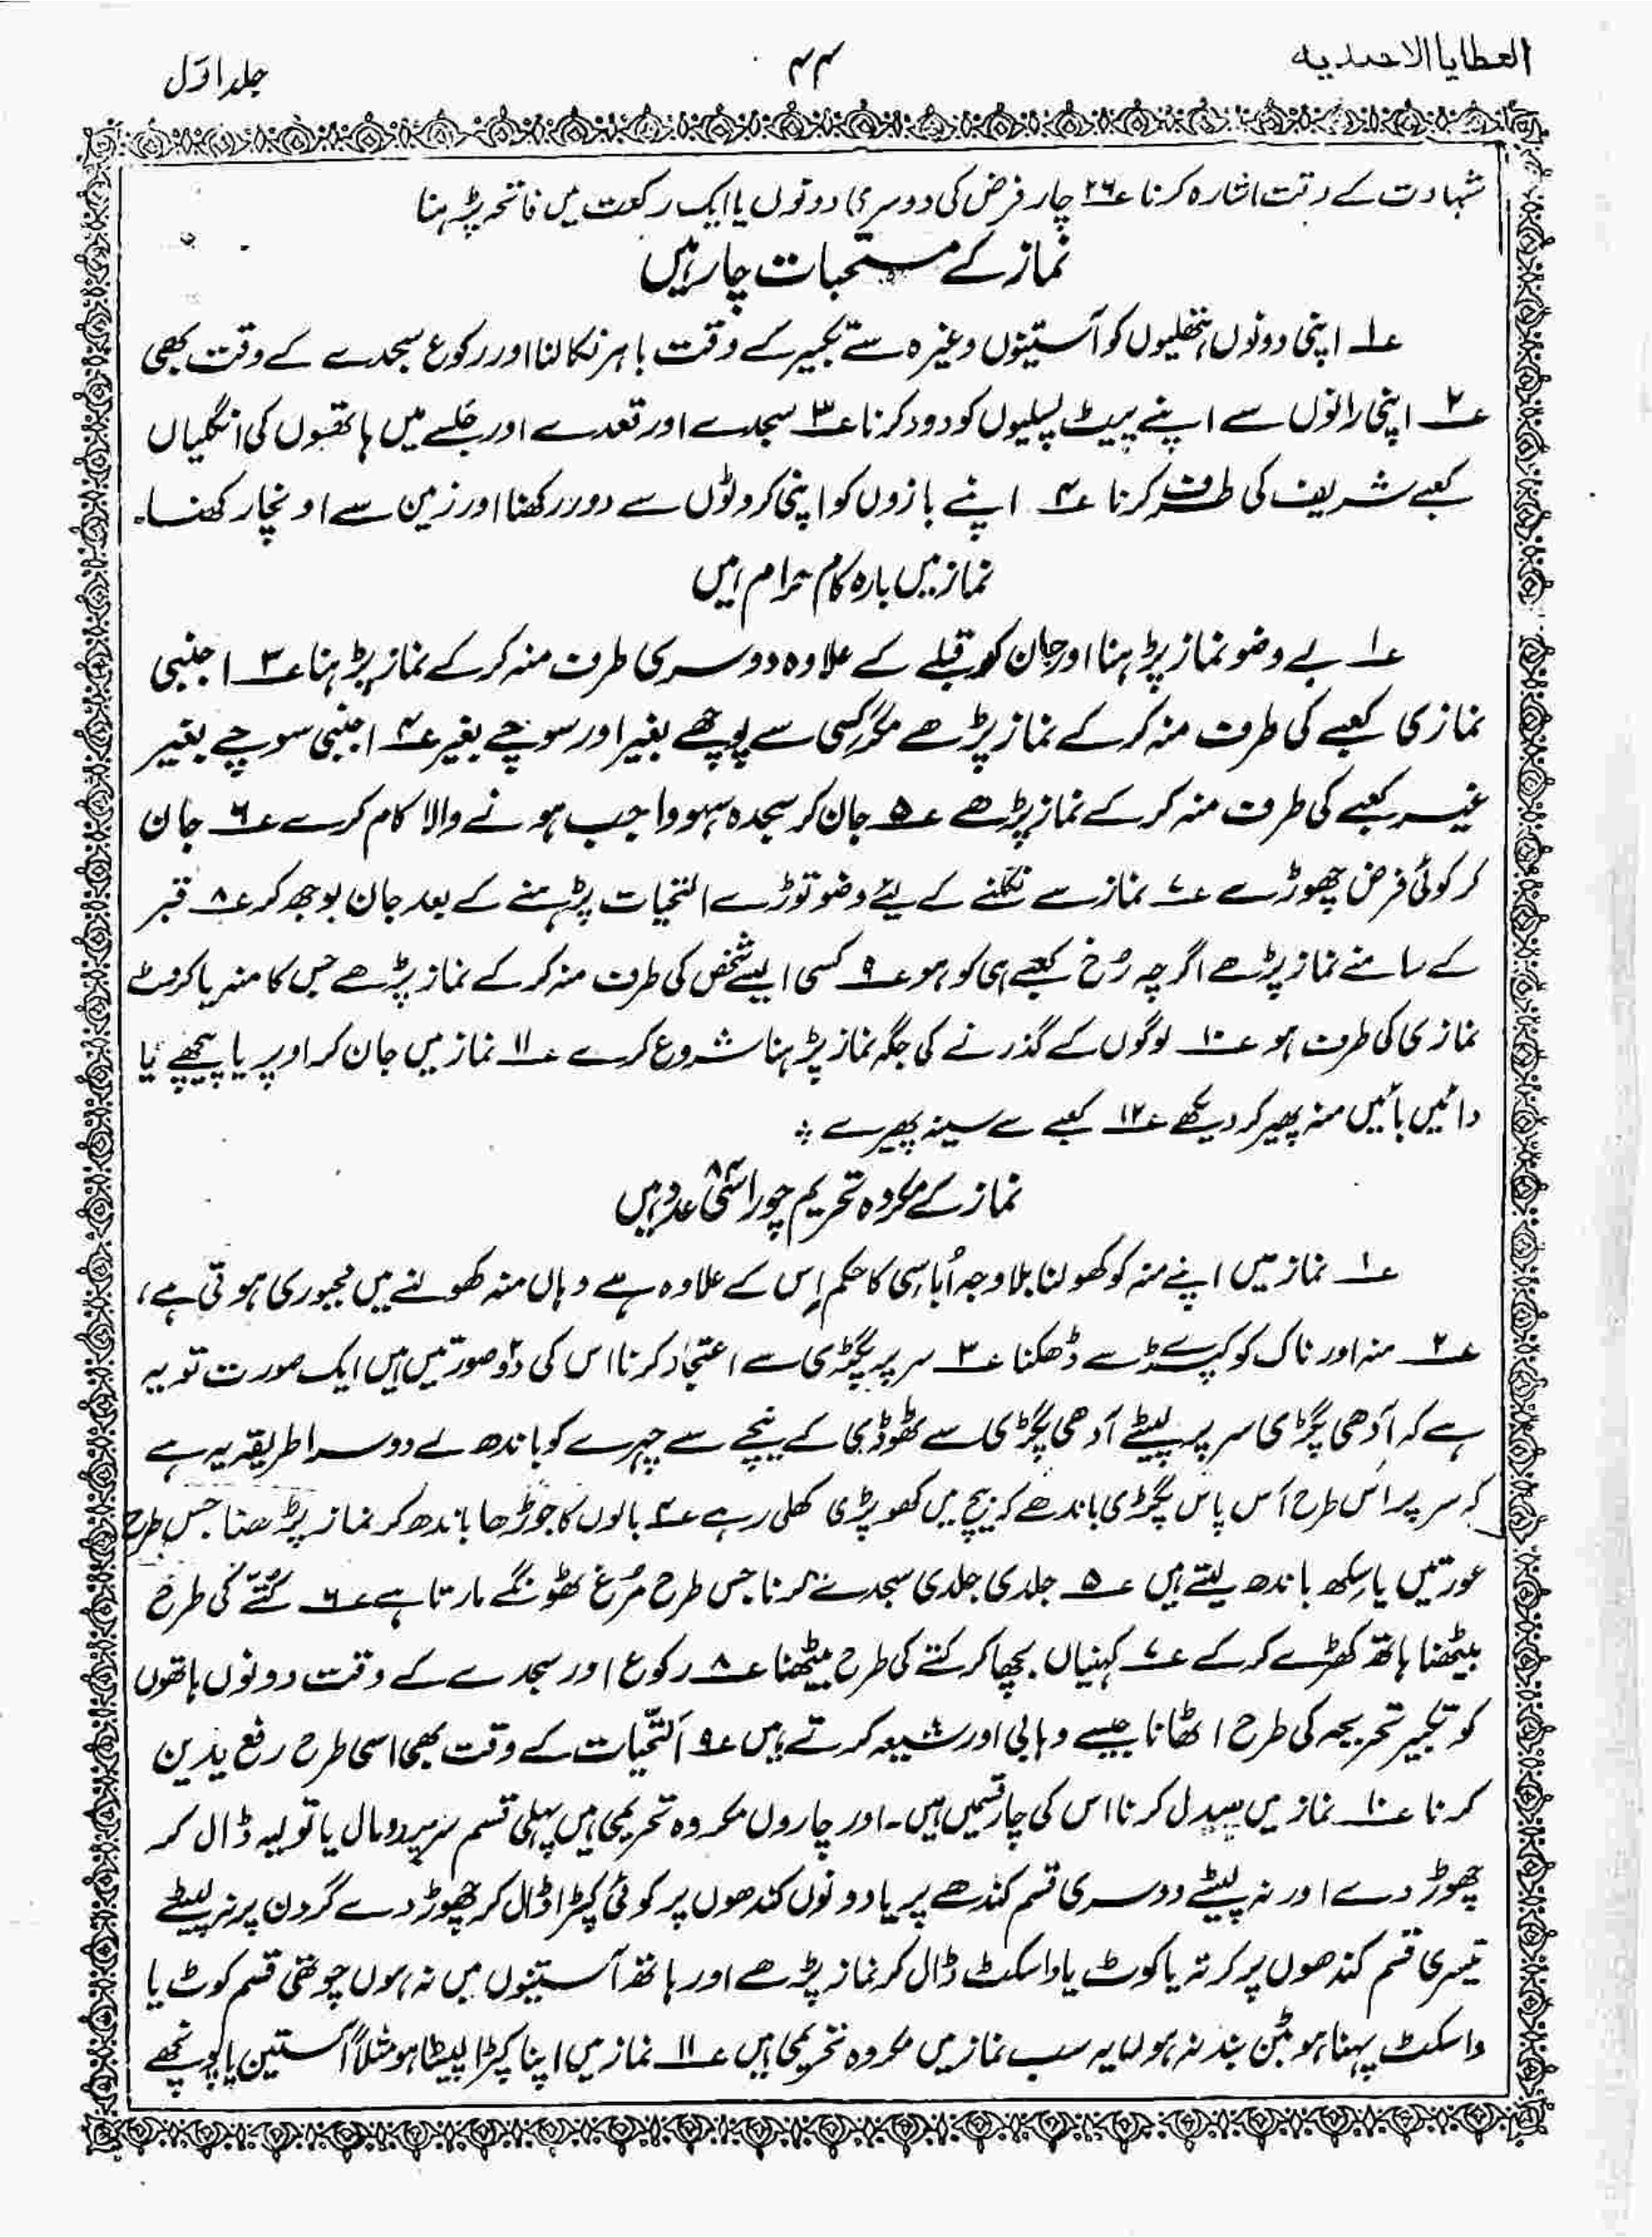 العطایا الاحمدیہ
۴۴
جلد اوّل
شہادت کے وقت اشارہ کرنا ۲۶؎ چار فرض کی دوسری دونوں یا ایک رکعت میں فاتحہ پڑہنا
نماز کے مستحبات چار ہیں
۱؎ اپنی دونوں ہتھلیوں کو آستینوں وغیرہ سے تکبیر کے وقت باہر نکالنا اور رکوع سجدے کے وقت بھی
۲؎ اپنی رانوں سے اپنے پیٹ پسلیوں کو دور کرنا ۳؎ سجدے اور قعدے اور جلسے میں ہاتھوں کی انگلیاں
کعبے شریف کی طرف کرنا ۴؎ اپنے بازوں کو اپنی کروٹوں سے دور رکھنا اور زمین سے اونچا رکھنا۔
نماز میں بارہ کام حرام ہیں
۱؎ بے وضو نماز پڑہنا اور جان کر قبلے کے علاوہ دوسری طرف منہ کر کے نماز پڑہنا ۳؎ اجنبی
نمازی کعبے کی طرف منہ کر کے نماز پڑھے مگر کسی سے پوچھے بغیر اور سوچے بغیر ۴؎ اجنبی سوچے بغیر
غیر کعبے کی طرف منہ کر کے نماز پڑھے ۵؎ جان کر سجدہ سہو واجب ہونے والا کام کرے ۶؎ جان
کر کوئی فرض چھوڑے ۷؎ نماز سے نکلنے کے لیئے وضو توڑے التحیات پڑہنے کے بعد جان بوجھ کر ۸؎ قبر
کے سامنے نماز پڑھے اگرچہ رُخ کعبے ہی کو ہو ۹؎ کسی ایسے شخص کی طرف منہ کر کے نماز پڑھے جس کا منہ یا کروٹ
نمازی کی طرف ہو ۱۰؎ لوگوں کے گذرنے کی جگہ نماز پڑہنا شروع کرے ۱۱؎ نماز میں جان کر اوپر یا پیچھے یا
دائیں بائیں منہ پھیر کر دیکھے ۱۲؎ کعبے سے سینہ پھیرے ؞
نماز کے مکروہ تحریم چوراسی ۸۴ عدد ہیں
۱؎ نماز میں اپنے منہ کو کھولنا بلا وجہ اُباسی کا حکم اِس کے علاوہ ہے وہاں منہ کھولنے میں مجبوری ہوتی ہے،
۲؎ منہ اور ناک کو کپڑے سے ڈھکنا ۳؎ سر پر پگڑی سے اعتجار کرنا اس کی دٗو صورتیں ہیں ایک صورت تو یہ
ہے کہ آدھی پگڑی سر پر لپیٹے آدھی پگڑی سے ٹھوڈی کے نیچے سے چہرے کو باندھ لے دوسرا طریقہ یہ ہے
کہ سر پر اس طرح آس پاس پگڑی باندھے کہ بیچ میں کھوپڑی کھلی رہے ۴؎ بالوں کا جوڑھا باندھ کر نماز پڑھنا جس طرح
عورتیں یا سکھ باندھ لیتے ہیں ۵؎ جلدی جلدی سجدے کرنا جس طرح مُرغ ٹھونگے مارتا ہے ۶؎ کُتّے کی طرح
بیٹھنا ہاتھ کھڑے کر کے ۷؎ کہنیاں بچھا کر کتے کی طرح بیٹھنا ۸؎ رکوع اور سجدے کے وقت دونوں ہاتھوں
کو تکبیر تحریمہ کی طرح اٹھانا جیسے وہابی اور شیعہ کرتے ہیں ۹؎ اَلتَّحیّات کے وقت بھی اسی طرح رفع یدین
کرنا ۱۰؎ نماز میں سدل کرنا اس کی چار قسمیں ہیں۔ اور چاروں مکروہ تحریمی ہیں پہلی قسم سر پر رومال یا تولیہ ڈال کر
چھوڑ دے اور نہ لپیٹے دوسری قسم کندھے پر یا دونوں کندھوں پر کوئی کپڑا ڈال کر چھوڑ دے گردن پر نہ لپیٹے
تیسری قسم کندھوں پر کرتہ یا کوٹ یا واسکٹ ڈال کر نماز پڑھے اور ہاتھ آستینوں میں نہ ہوں چوتھی قسم کوٹ یا
واسکٹ پہنا ہو بٹن بند نہ ہوں یہ سب نماز میں مکروہ تحریمی ہیں ۱۱؎ نماز میں اپنا کپڑا لپیٹا ہو مثلاً آستین یا پونچھے